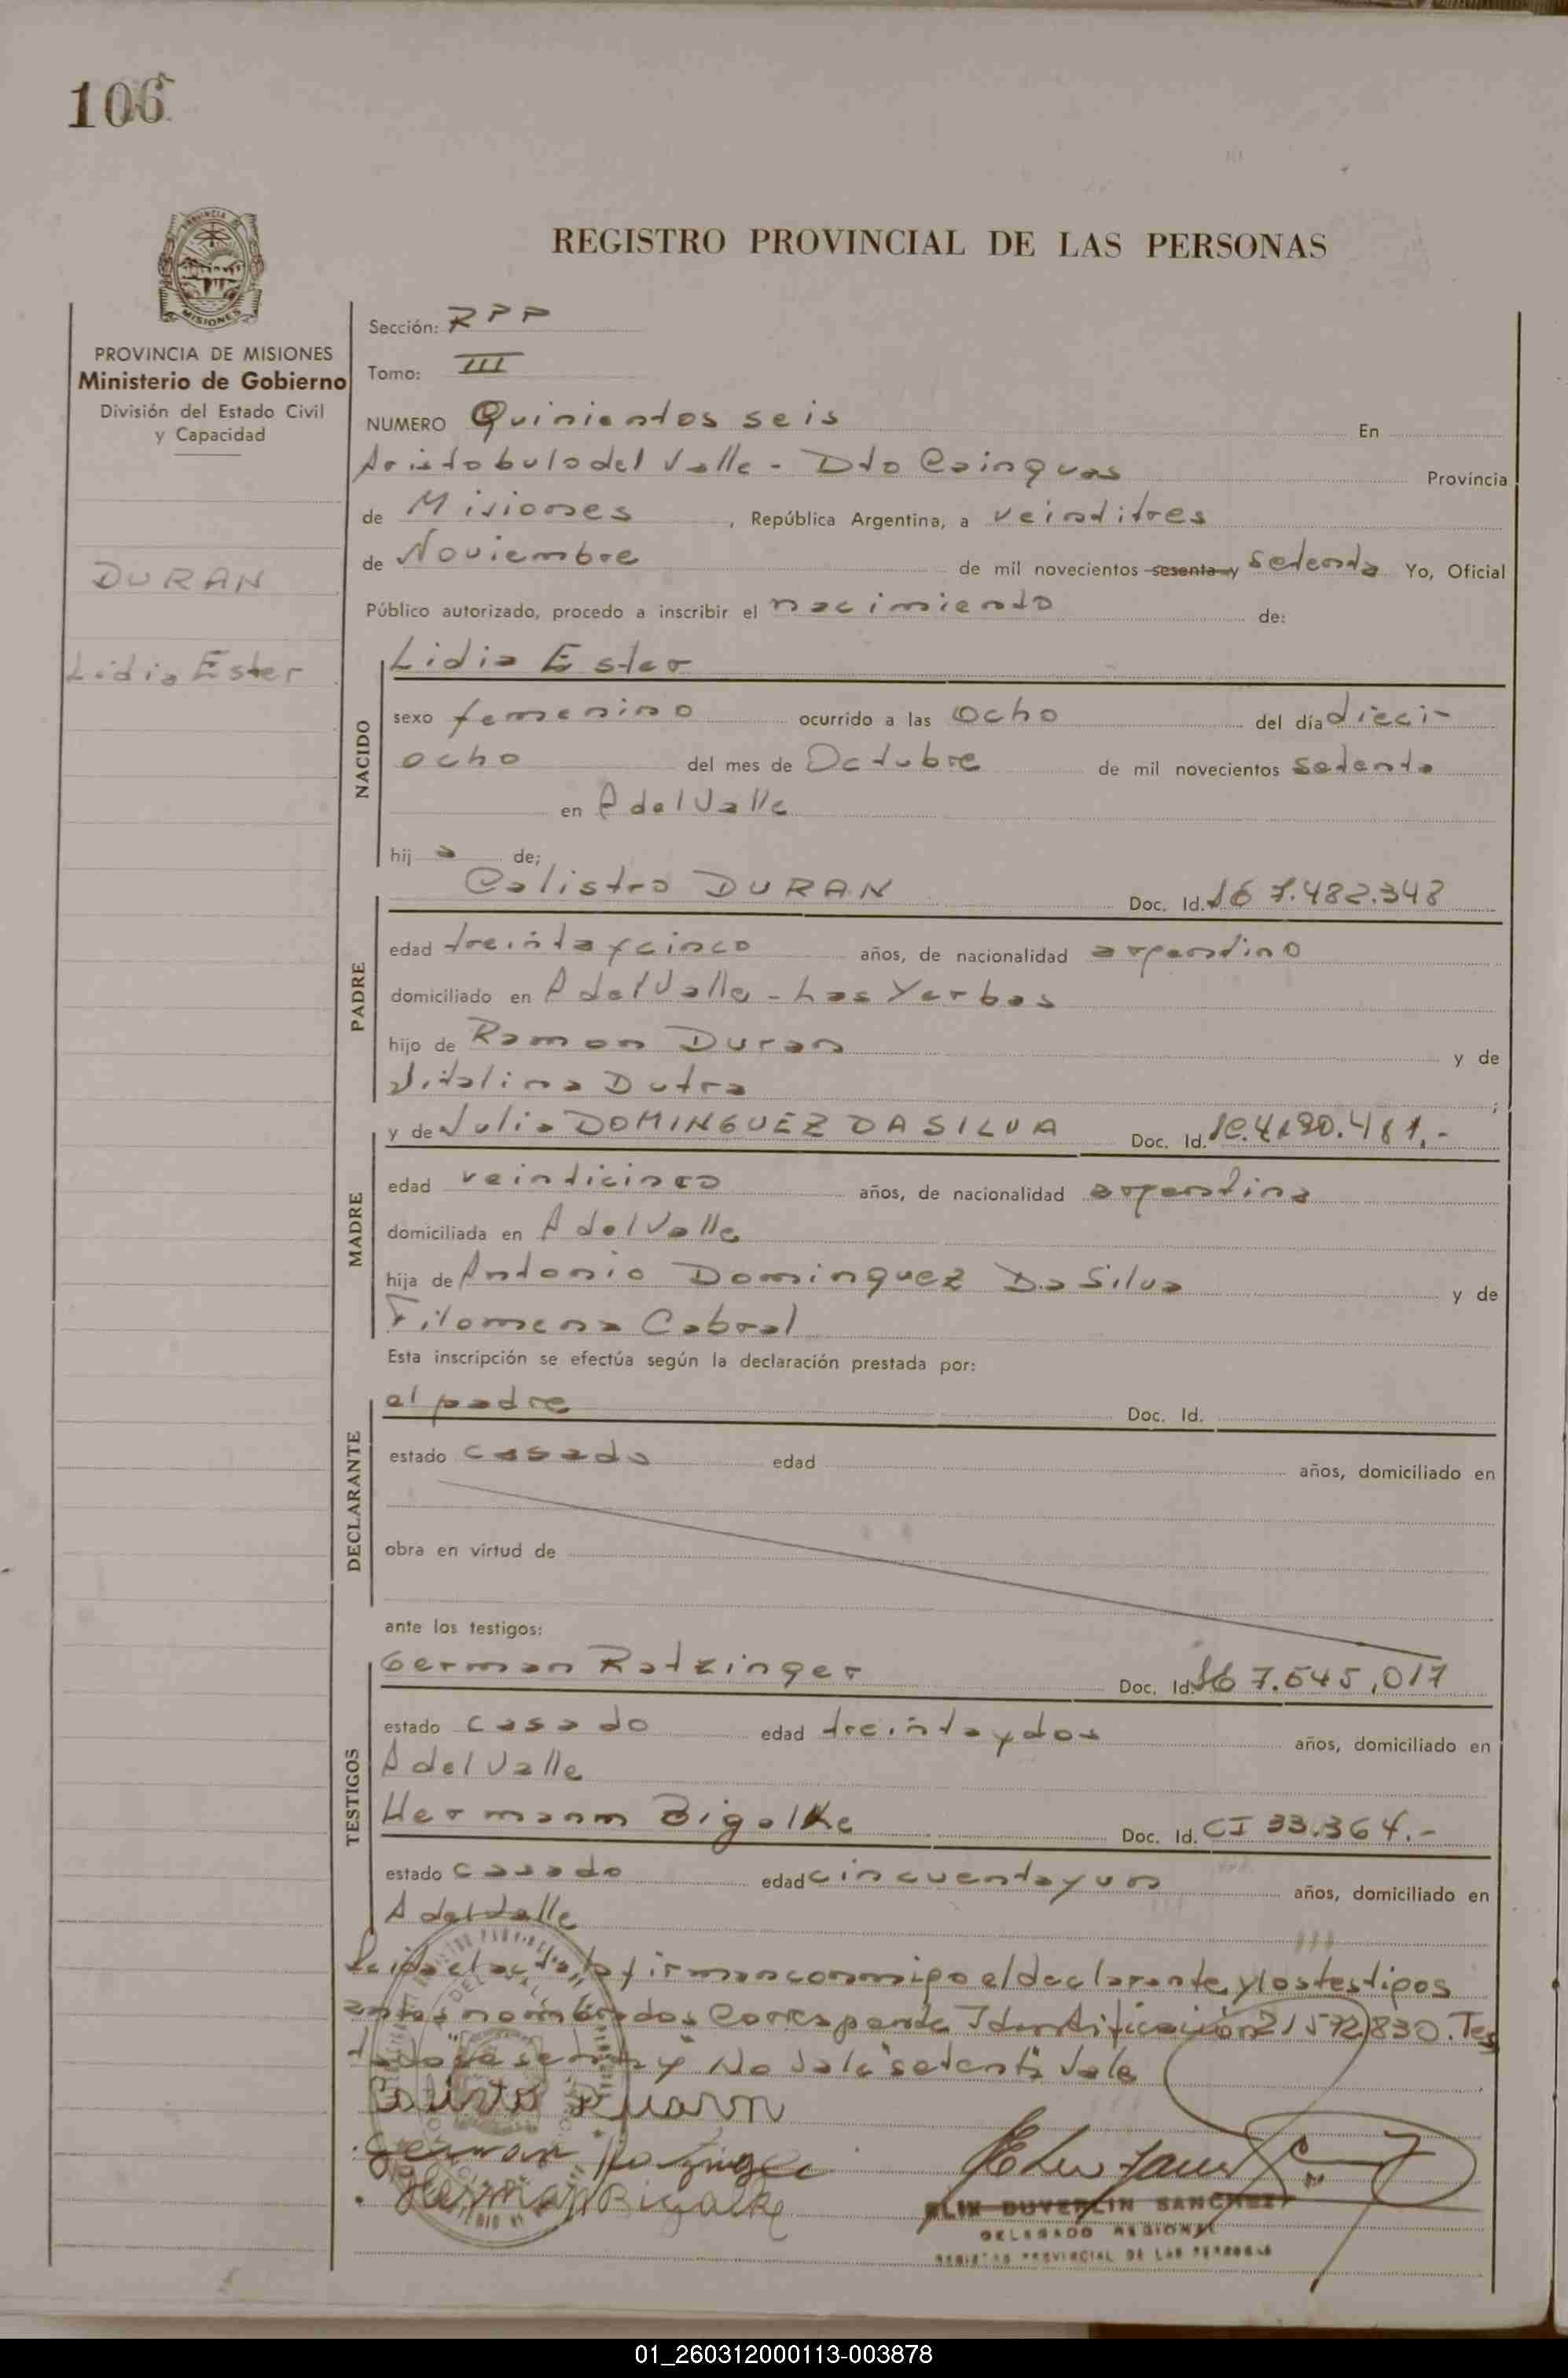 106
REGISTRO PROVINCIAL DE LAS PERSONAS
PROVINCIA DE MISIONES
Ministerio de Gobierno
División del Estado Civil
y Capacidad
DURAN
Lidia Ester
Sección: RPP
Tomo: III
NUMERO Quinientos seis En
Aristobulo del Valle - Dto Cainguas Provincia
de Misiones, República Argentina, a veintitres
de Noviembre de mil novecientos sesenta y setenta Yo, Oficial
Público autorizado, procedo a inscribir el nacimiento de:
NACIDO
Lidia Ester
sexo femenino ocurrido a las Ocho del día dieci-
ocho del mes de Octubre de mil novecientos setenta
en A del Valle
hij a de;
PADRE
Calistro DURAN Doc. Id. 7.482.348
edad treinta y cinco años, de nacionalidad argentino
domiciliado en A del Valle - Las Yerbas
hijo de Ramon Duran y de
Vitalina Dutra ;
MADRE
y de Julia DOMINGUEZ DA SILVA Doc. Id.
edad veinticinco años, de nacionalidad argentina
domiciliada en A del Valle
hija de Antonio Dominguez Da Silva y de
Filomena Cabral
Esta inscripción se efectúa según la declaración prestada por:
DECLARANTE
el padre Doc. Id.
estado casado edad años, domiciliado en
obra en virtud de
ante los testigos:
TESTIGOS
German Ratzinger Doc. Id. 7.645.017
estado casado edad treinta y dos años, domiciliado en
A del Valle
Hermann Bigalke Doc. Id. CI 33.364.-
estado casado edad cincuenta y un años, domiciliado en
A del Valle
Leida el acta la firman conmigo el declarante y los testigos
antes nombrados Corresponde Identificación 21572830. Tes
tado sesenta y No Vale "setenta" Vale
Duran
German Ratzinger
Herman Bigalke
ELIX DUVERLIN SANCHEZ
DELEGADO REGIONAL
REGISTRO PROVINCIAL DE LAS PERSONAS
01_260312000113-003878